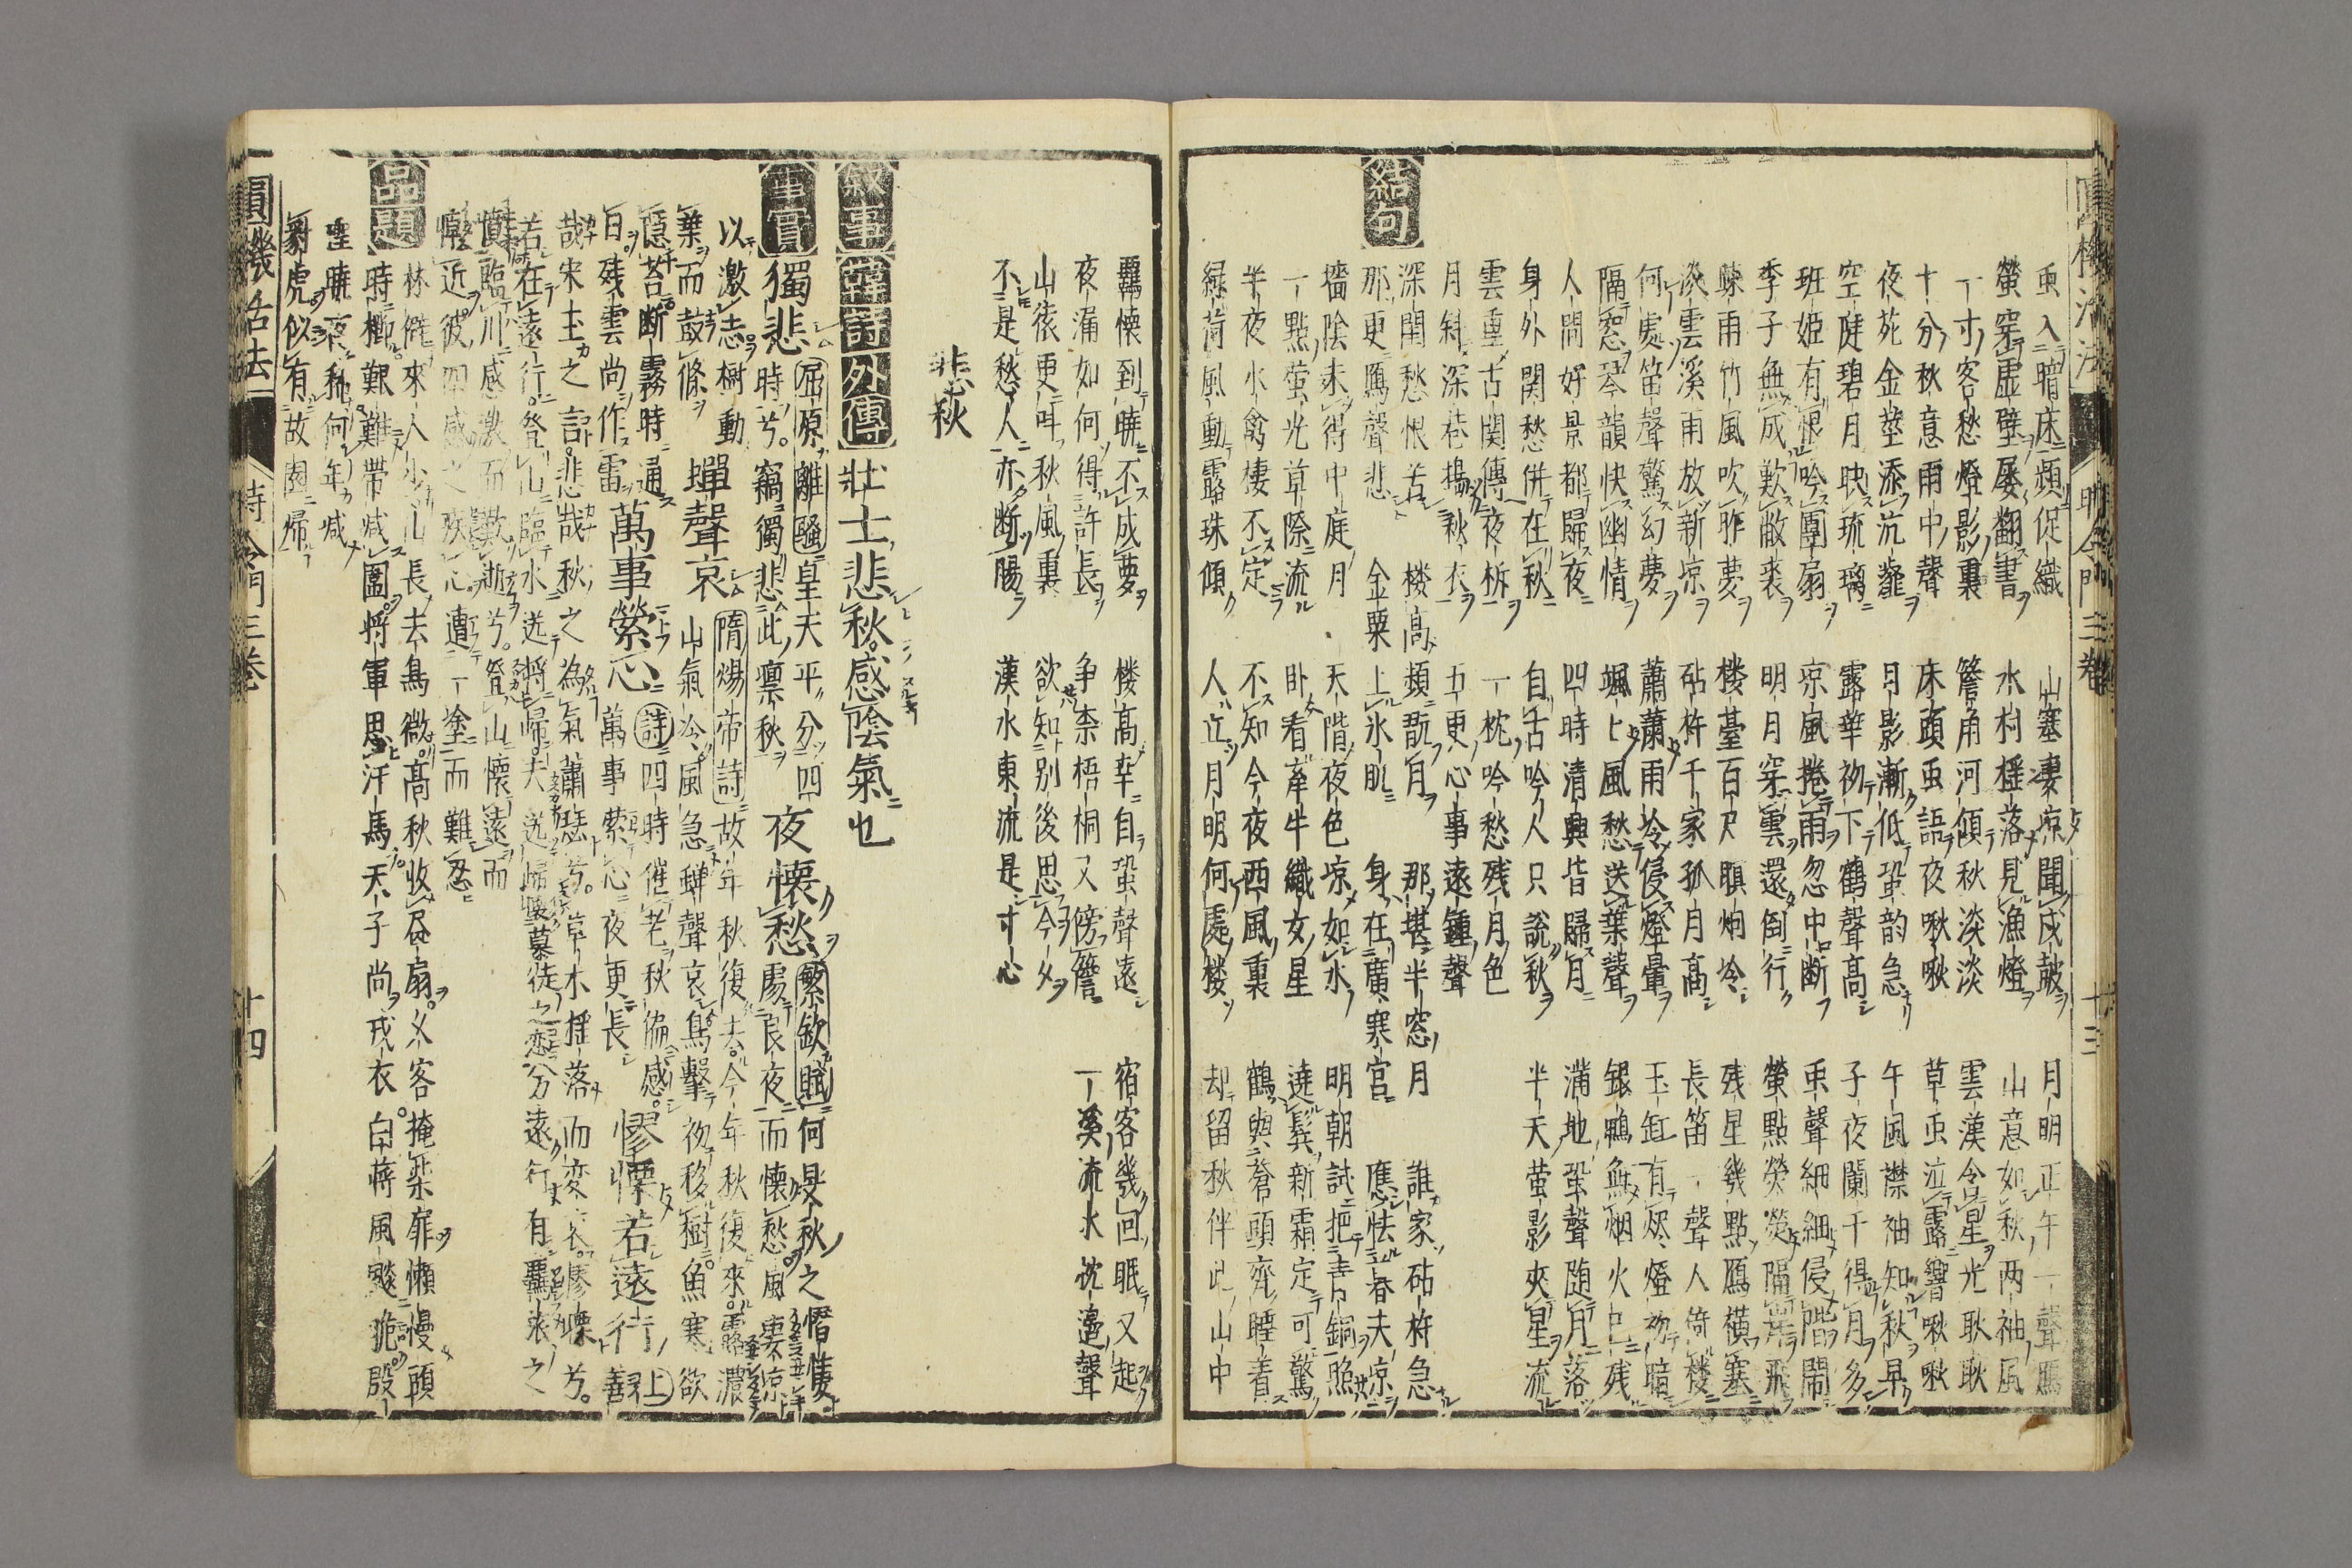 虫入暗床頻促織 山塞凄凉聞戍皷 月明正午一聲鴈
螢穿虛壁屡翻書 水村揺落見漁燈 山意如秋两袖風
一寸客愁燈影裏 簷角河傾秋淡淡 雲漢含星光耿耿
十分秋意雨中聲 床頭虫語夜啾啾 草虫泣露響啾啾
夜苑金莖添沆瀣 月影漸低蛩韵急 午風襟袖知秋早
空陛碧月映琉璃 露華初下鶴聲高 子夜闌干得月多
班姬有恨吟團扇 凉風捲雨忽中断 虫聲細細侵階鬧
季子無成歎敝裘 明月穿雲還倒行 螢點熒熒隔葉飛
踈雨竹風吹昨夢 楼臺百尺瞑烟冷 残星幾點鴈横塞
淡雲溪雨放新凉 砧杵千家孤月高 長笛一聲人倚楼
何處笛聲驚幻夢 蕭蕭雨冷侵燈暈 玉缸有烬燈初暗
隔窓琴韻快幽情 颯颯風愁送葉聲 銀鴨無烟火已残
人間好景都歸夜 四時清興皆歸月 滿地蛩聲随月落
身外関愁併在秋 自古吟人只說秋 半天螢影夾星流
雲重古関傳夜柝 一枕吟愁残月色
月斜深巷搗秋衣 五更心事遠鍾聲
結句 深閨愁恨苦 楼高頻翫月 那堪半窓月 誰家砧杵急
那更鴈聲悲 金粟上氷肌 身在廣寒宮 應怯春夫凉
墻陰未得中庭月 天階夜色凉如水 明朝試把青銅照
一點螢光草際流 卧看牽牛織女星 遶鬂新霜定可驚
半夜水禽棲不定 不知今夜西風裏 鶴與蒼頭齊睡着
緑荷風動露珠傾 人立月明何處楼 却留秋伴此山中
圓機活法 時令門三卷 十三
羈懐到曉不成夢 楼高幸自蛩聲遠 宿客幾回眠又起
夜漏如何得許長 争柰梧桐又傍簷 一溪流水枕邊聲
山依更呌秋風裏 欲知别後思今夕
不是愁人亦断腸 漢水東流是寸心
悲秋
叙事 韓詩外傳 壮士悲秋感陰氣也
事實 獨悲 屈原離騷皇天平分四時兮竊獨悲此凛秋 夜懐愁 繁欽賦何旻秋之憯悽處良夜而懐愁風凄凉
以激志樹動葉而鼓條 蟬聲哀 隋煬帝詩故年秋復去今年秋復來露濃山氣冷風急蟬聲哀鳥擊初移樹魚寒欲
隱苔断霧時通日残雲尚作雷 萬事縈心 詩四時催老秋偏感萬事縈心夜更長 憀慄若遠行 上善
哉宋玉之言悲哉秋之為氣蕭瑟兮草木揺落而変衰憀慄兮
若在遠行登山臨水送將歸夫送歸懐慕徒之戀分遠行有羈旅之
憤臨川感激而歎逝兮登山懐遠而
悼近彼四感之疚心遭一塗而難忍
品題 林僻來人少山長去鳥微高秋收昼扇乆客掩柴扉懶慢頭
時櫛艱難帶减圍將軍思汗馬天子尚戎衣白蒋風飈脆殷
檉曉夜稀何年减
豺虎似有故園歸
圓機活法 時令門三卷 十四